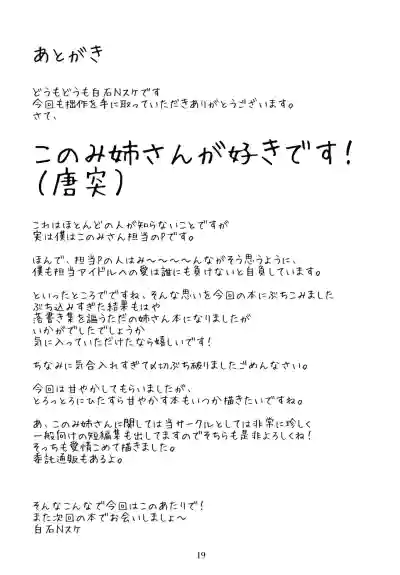 あとがき
どうもどうも白石Nスケです
今回も拙作を手に取っていただきありがとうございます。
さて、
このみ姉さんが好きです！
（唐突）
これはほとんどの人が知らないことですが
実は僕はこのみさん担当のPです。
ほんで、担当Pの人はみ～～～～んながそう思うように、
僕も担当アイドルへの愛は誰にも負けないと自負しています。
といったところでですね、そんな思いを今回の本にぶちこみました
ぶち込みすぎた結果もはや
落書き集を謳うただの姉さん本になりましたが
いかがでしたでしょうか
気に入っていただけたなら嬉しいです！
ちなみに気合入れすぎて〆切ぶち破りましたごめんなさい。
今回は甘やかしてもらいましたが、
とろっとろにひたすら甘やかす本もいつか描きたいですね。
あ、このみ姉さんに関しては当サークルとしては非常に珍しく
一般向けの短編集も出してますのでそちらも是非よろしくね！
そっちも愛情こめて描きました。
委託通販もあるよ。
そんなこんなで今回はこのあたりで！
また次回の本でお会いしましょ～
白石Nスケ
19